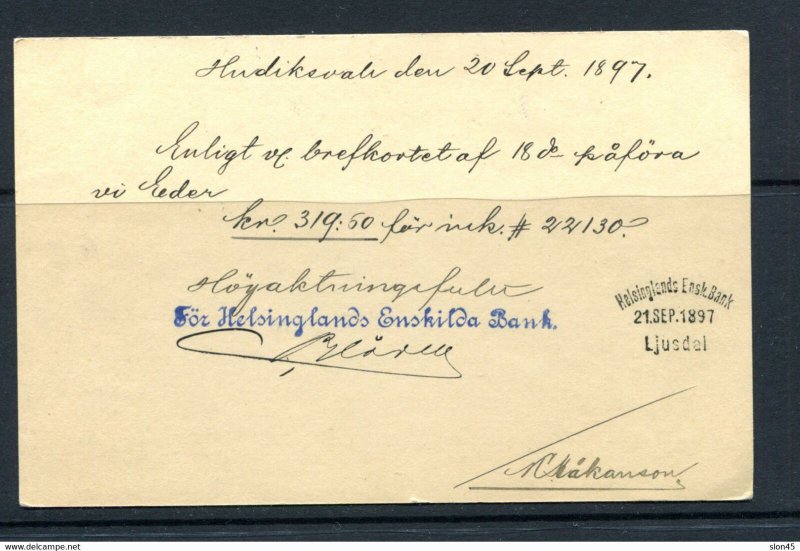 Hudiksvall den 20 Sept. 1897.
Enligt brefkortet af 18 de påföra
vi Eder
kr. 319:50 för ink. # 22130.
Högaktningsfullt
För Helsinglands Enskilda Bank.
Helsinglands Ensk. Bank
21.SEP.1897
Ljusdal
Håkanson
www.delcampe.net
slon45